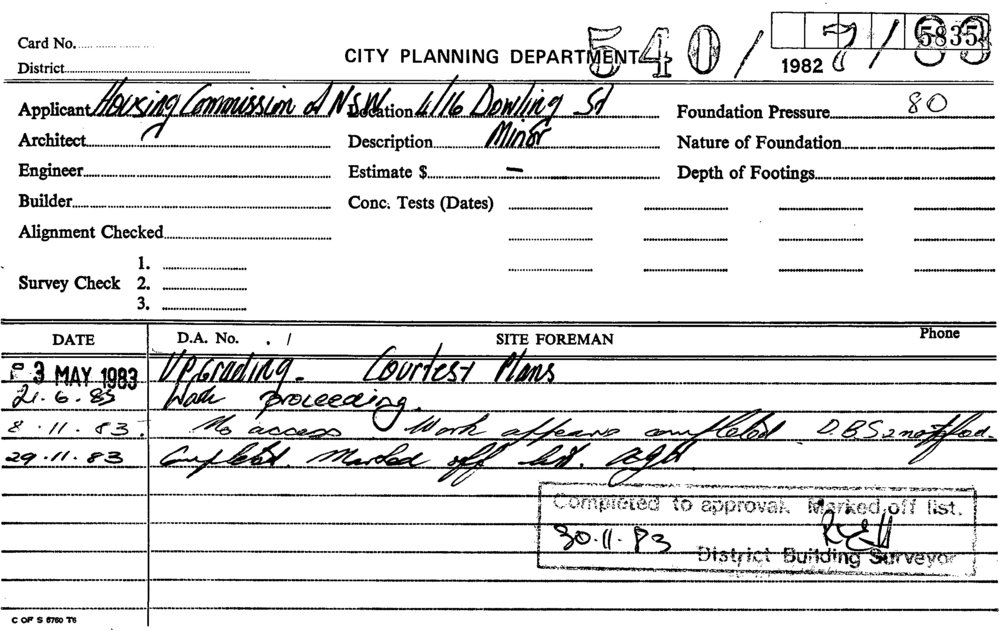 Card No.
CITY PLANNING DEPARTMENT
540/7/83
5835
1982
District
Applicant Housing Commission of NSW Location 4/16 Dowling St Foundation Pressure 80
Architect Description Minor Nature of Foundation
Engineer Estimate $ – Depth of Footings
Builder Conc. Tests (Dates)
Alignment Checked
1.
Survey Check 2.
3.
DATE D.A. No. . / SITE FOREMAN Phone
3 MAY 1983 Upgrading. Courtesy Plans
21.6.83 Work proceeding.
8.11.83. No access Work appears completed D.B.S
29.11.83 Completed. Marked off list.
Completed to approval. Marked off list.
30.11.83
District Building Surveyor
C OF S 6760 T6